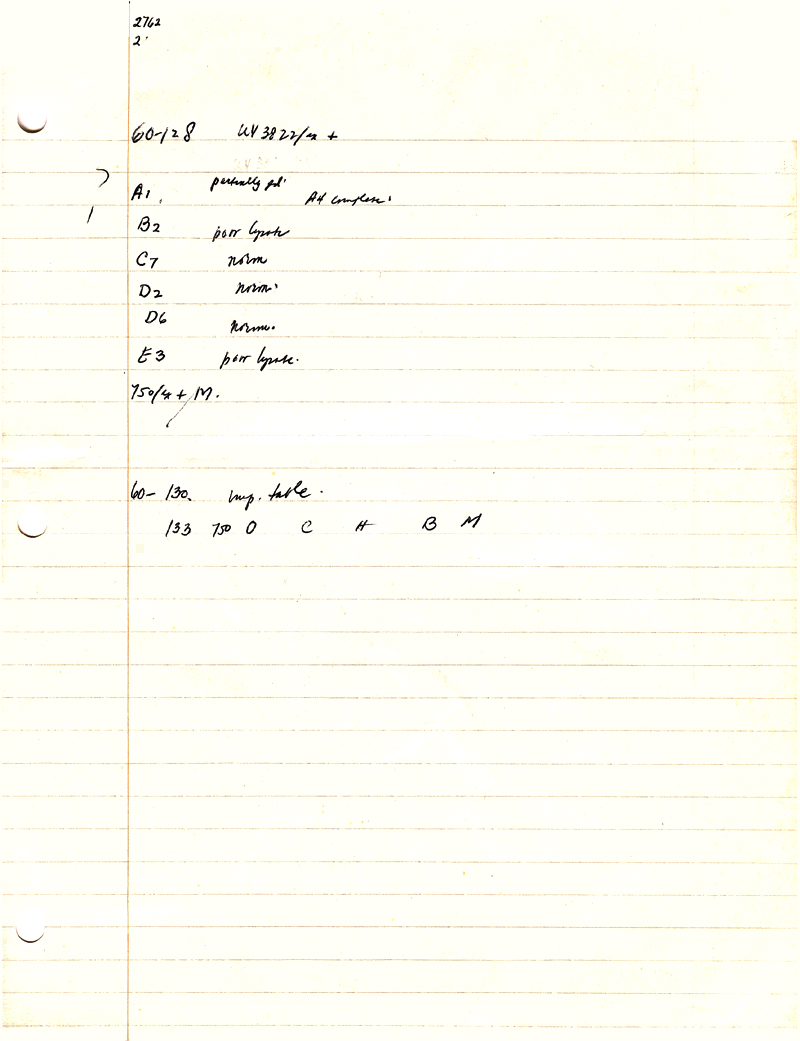 2762
2'
60-128 UV 3822/ex +
A1. partially A4 complete.
B2 poor lysate
C7 norm
D2 norm.
D6 norm.
E3 poor lysate.
750/ex + M.
60-130. imp. table.
133 750 O C H B M